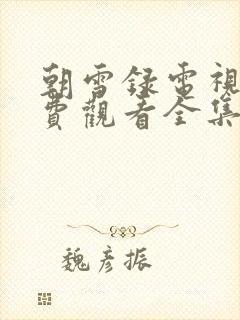 朝雪録電視
費觀看全集
魏彦振